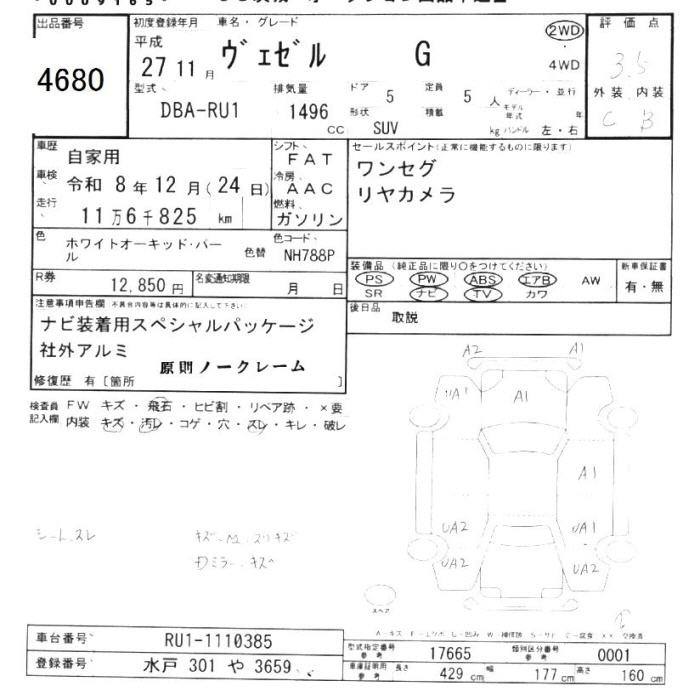 出品番号
4680
初度登録年月
平成
27 11 月
車名・グレード
ヴェゼル G
2WD
4WD
評価点
3.5
外装 内装
C B
型式
DBA-RU1
排気量
1496 cc
ドア 5
形状 SUV
定員 5 人
積載 kg
ディーラー・並行
モデル年式 年
ハンドル 左・右
車歴 自家用
車検 令和 8年 12月(24日)
走行 11万6千825 km
シフト FAT
冷房 AAC
燃料 ガソリン
セールスポイント(正常に機能するものに限ります)
ワンセグ
リヤカメラ
色 ホワイトオーキッド・パール
色替
色コード NH788P
R券 12,850円
名変通知期限 月 日
装備品(純正品に限り○をつけてください)
PS PW ABS エアB AW
SR ナビ TV カワ
新車保証書
有・無
後日品 取説
注意事項申告欄 不具合内容等は具体的に記入して下さい
ナビ装着用スペシャルパッケージ
社外アルミ
原則ノークレーム
修復歴 有[箇所 ]
検査員記入欄
FW キズ・飛石・ヒビ割・リペア跡・×要
内装 キズ・汚レ・コゲ・穴・スレ・キレ・破レ
シートスレ
A2 A1
UA1 A1
A1
UA2 UA1
UA2 UA2
スペア
車台番号 RU1-1110385
登録番号 水戸 301 や 3659
型式指定番号 参考 17665
類別区分番号 参考 0001
車庫証明用 参考 長さ 429 cm 幅 177 cm 高さ 160 cm